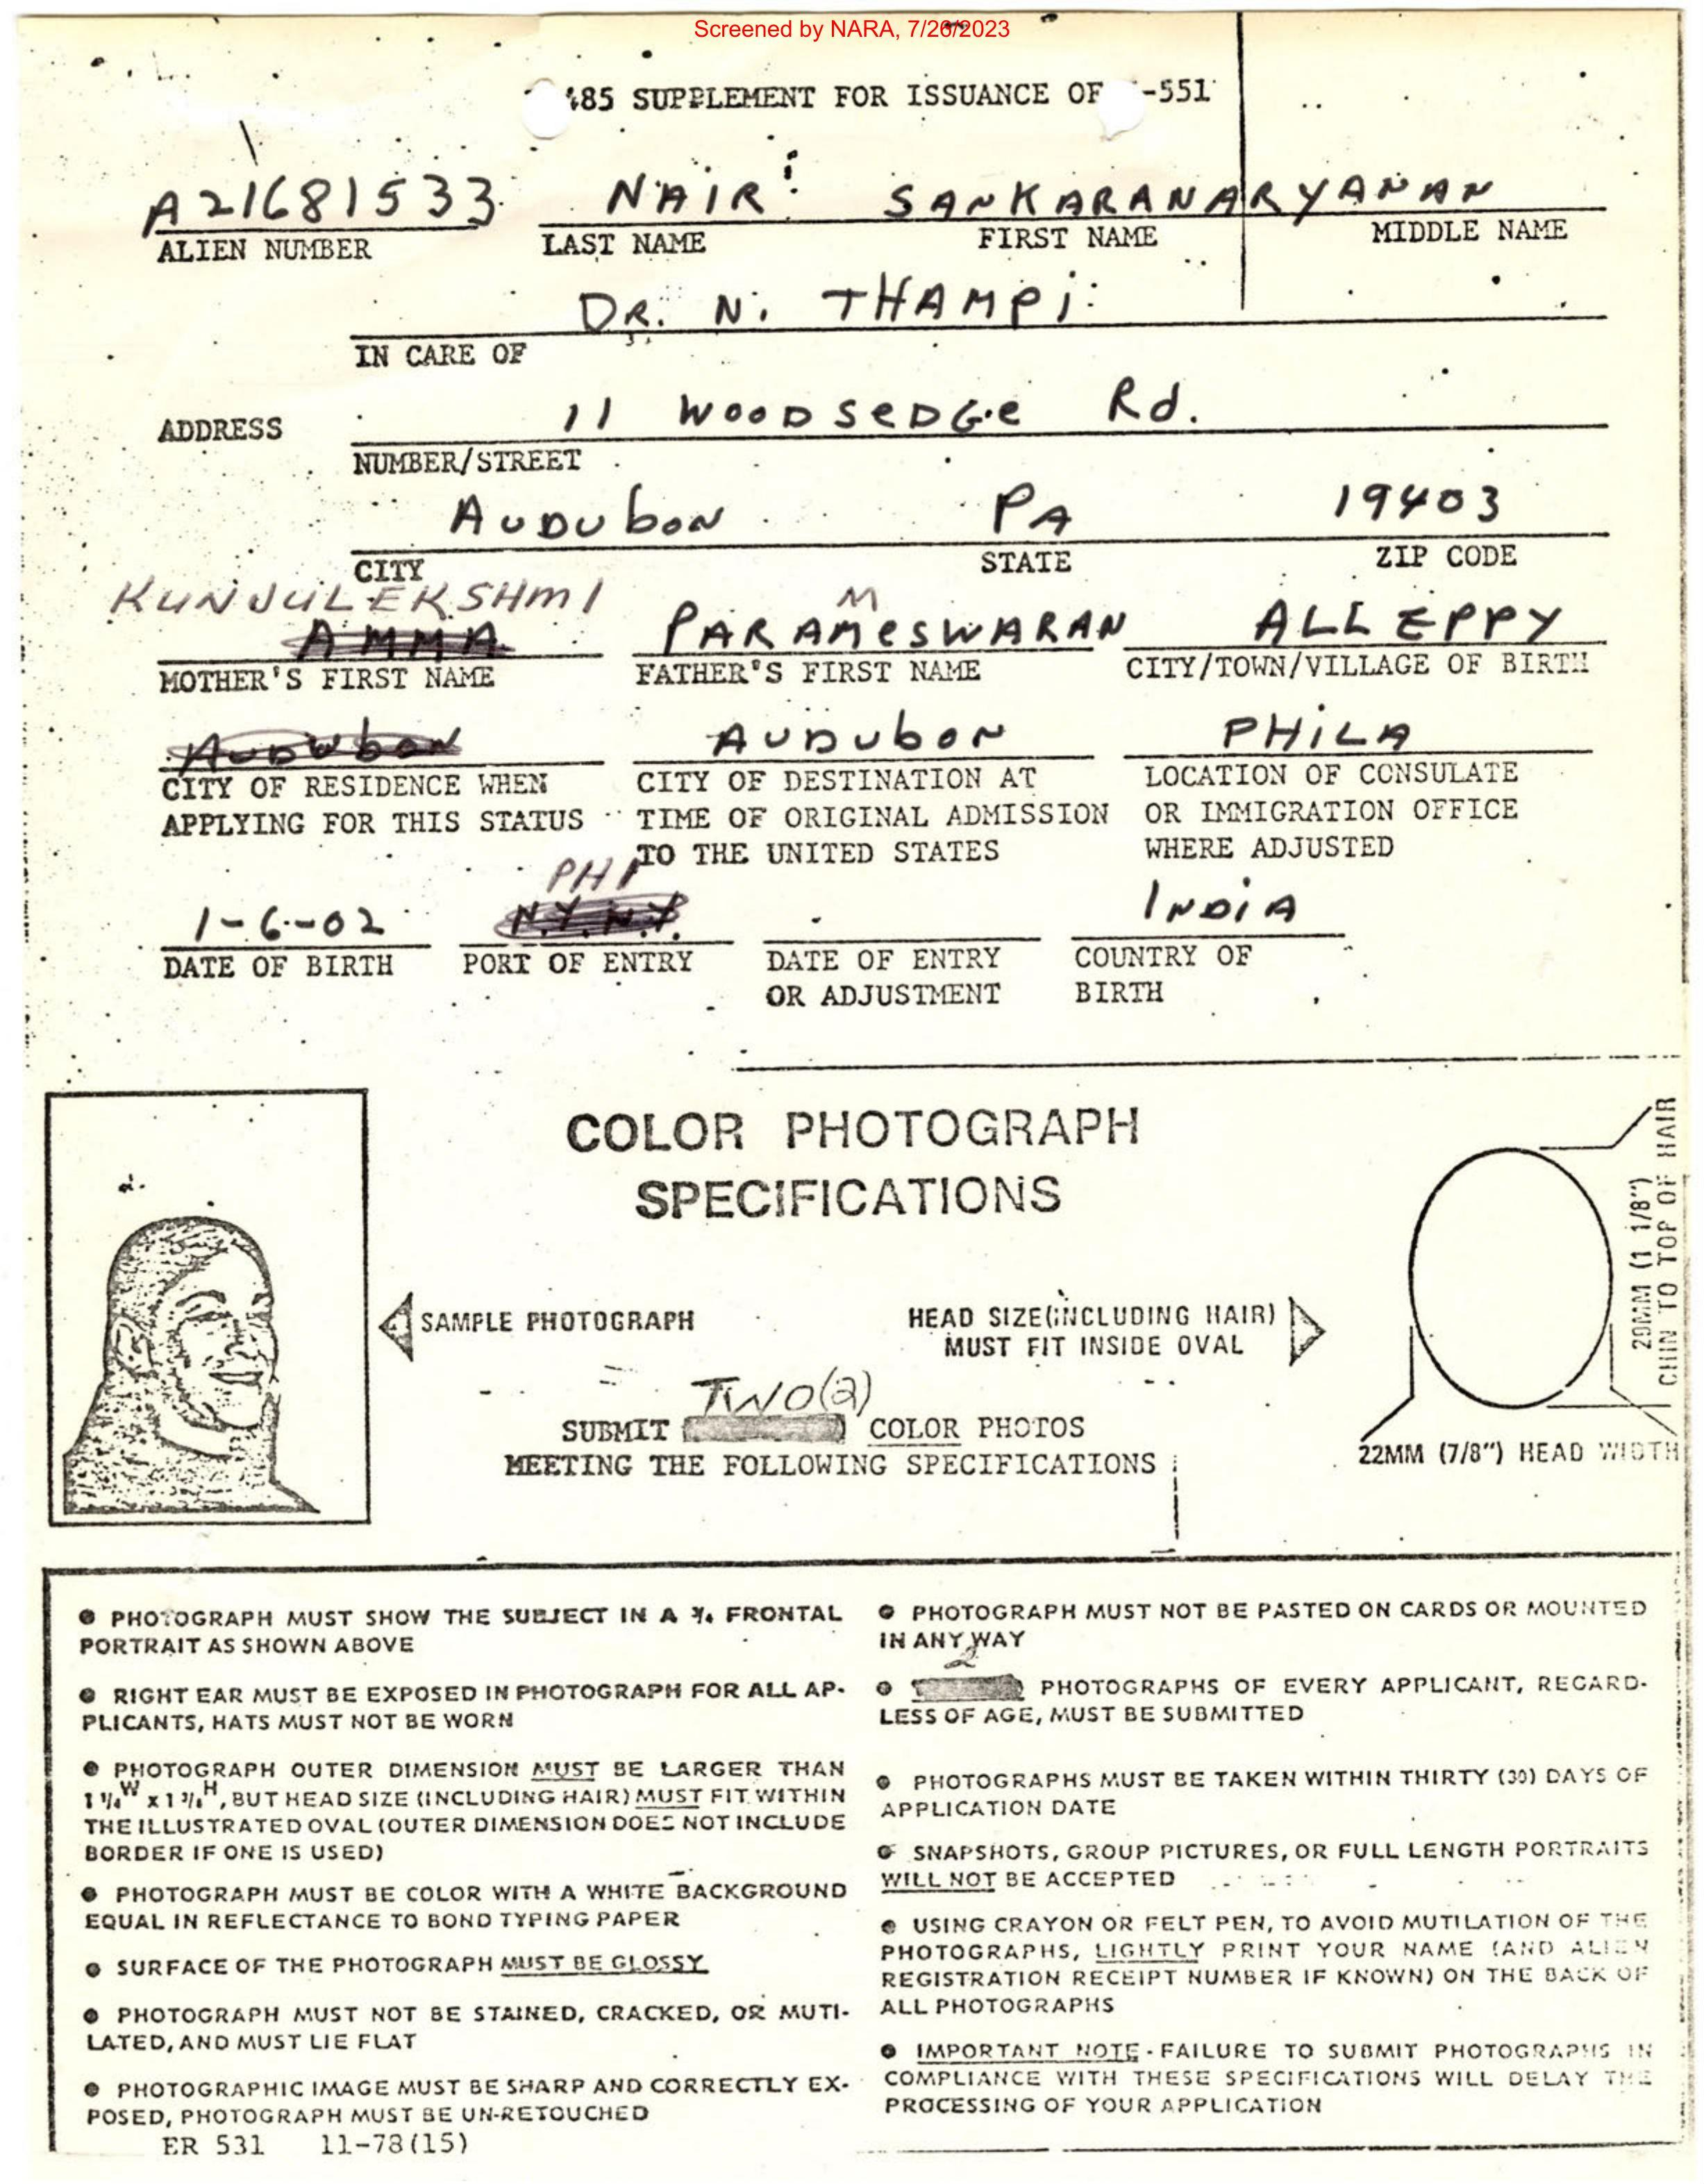 Screened by NARA, 7/26/2023
485 SUPPLEMENT FOR ISSUANCE OF -551
A21681533 NAIR SANKARANARYANAN
ALIEN NUMBER LAST NAME FIRST NAME MIDDLE NAME
DR. N. THAMPI
IN CARE OF
11 WOODSEDGE Rd.
ADDRESS
NUMBER/STREET
AUDUBON PA 19403
CITY STATE ZIP CODE
KUNJULEKSHMI M
AMMA PARAMESWARAN ALLEPPY
MOTHER'S FIRST NAME FATHER'S FIRST NAME CITY/TOWN/VILLAGE OF BIRTH
AUDUBON AUDUBON PHILA
CITY OF RESIDENCE WHEN CITY OF DESTINATION AT LOCATION OF CONSULATE
APPLYING FOR THIS STATUS TIME OF ORIGINAL ADMISSION OR IMMIGRATION OFFICE
TO THE UNITED STATES WHERE ADJUSTED
PHI
1-6-02 N.Y. N.Y. INDIA
DATE OF BIRTH PORT OF ENTRY DATE OF ENTRY COUNTRY OF
OR ADJUSTMENT BIRTH
COLOR PHOTOGRAPH
SPECIFICATIONS
SAMPLE PHOTOGRAPH
HEAD SIZE(INCLUDING HAIR)
MUST FIT INSIDE OVAL
29MM (1 1/8")
CHIN TO TOP OF HAIR
22MM (7/8") HEAD WIDTH
TWO(2)
SUBMIT COLOR PHOTOS
MEETING THE FOLLOWING SPECIFICATIONS
● PHOTOGRAPH MUST SHOW THE SUBJECT IN A ¾ FRONTAL
PORTRAIT AS SHOWN ABOVE
● RIGHT EAR MUST BE EXPOSED IN PHOTOGRAPH FOR ALL AP-
PLICANTS, HATS MUST NOT BE WORN
● PHOTOGRAPH OUTER DIMENSION MUST BE LARGER THAN
1 ¼W x 1 ⅜H, BUT HEAD SIZE (INCLUDING HAIR) MUST FIT WITHIN
THE ILLUSTRATED OVAL (OUTER DIMENSION DOES NOT INCLUDE
BORDER IF ONE IS USED)
● PHOTOGRAPH MUST BE COLOR WITH A WHITE BACKGROUND
EQUAL IN REFLECTANCE TO BOND TYPING PAPER
● SURFACE OF THE PHOTOGRAPH MUST BE GLOSSY
● PHOTOGRAPH MUST NOT BE STAINED, CRACKED, OR MUTI-
LATED, AND MUST LIE FLAT
● PHOTOGRAPHIC IMAGE MUST BE SHARP AND CORRECTLY EX-
POSED, PHOTOGRAPH MUST BE UN-RETOUCHED
ER 531 11-78(15)
● PHOTOGRAPH MUST NOT BE PASTED ON CARDS OR MOUNTED
IN ANY WAY
2
● PHOTOGRAPHS OF EVERY APPLICANT, REGARD-
LESS OF AGE, MUST BE SUBMITTED
● PHOTOGRAPHS MUST BE TAKEN WITHIN THIRTY (30) DAYS OF
APPLICATION DATE
● SNAPSHOTS, GROUP PICTURES, OR FULL LENGTH PORTRAITS
WILL NOT BE ACCEPTED
● USING CRAYON OR FELT PEN, TO AVOID MUTILATION OF THE
PHOTOGRAPHS, LIGHTLY PRINT YOUR NAME (AND ALIEN
REGISTRATION RECEIPT NUMBER IF KNOWN) ON THE BACK OF
ALL PHOTOGRAPHS
● IMPORTANT NOTE - FAILURE TO SUBMIT PHOTOGRAPHS IN
COMPLIANCE WITH THESE SPECIFICATIONS WILL DELAY THE
PROCESSING OF YOUR APPLICATION